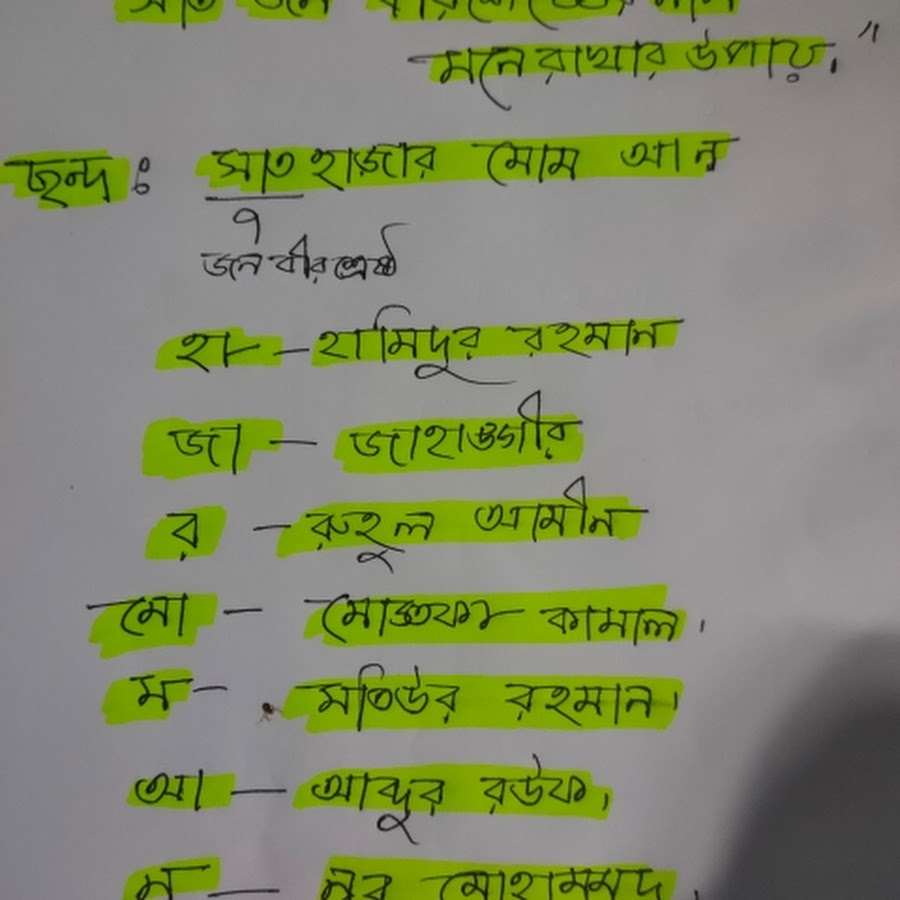 সাত জন বীরশ্রেষ্ঠের নাম
মনে রাখার উপায়।"
ছন্দ : সাত হাজার মোম আন
৭
জন বীরশ্রেষ্ঠ
হা - হামিদুর রহমান
জা - জাহাঙ্গীর
র - রুহুল আমীন
মো - মোস্তফা কামাল।
ম - মতিউর রহমান।
আ - আব্দুর রউফ।
ন - নূর মোহাম্মদ।